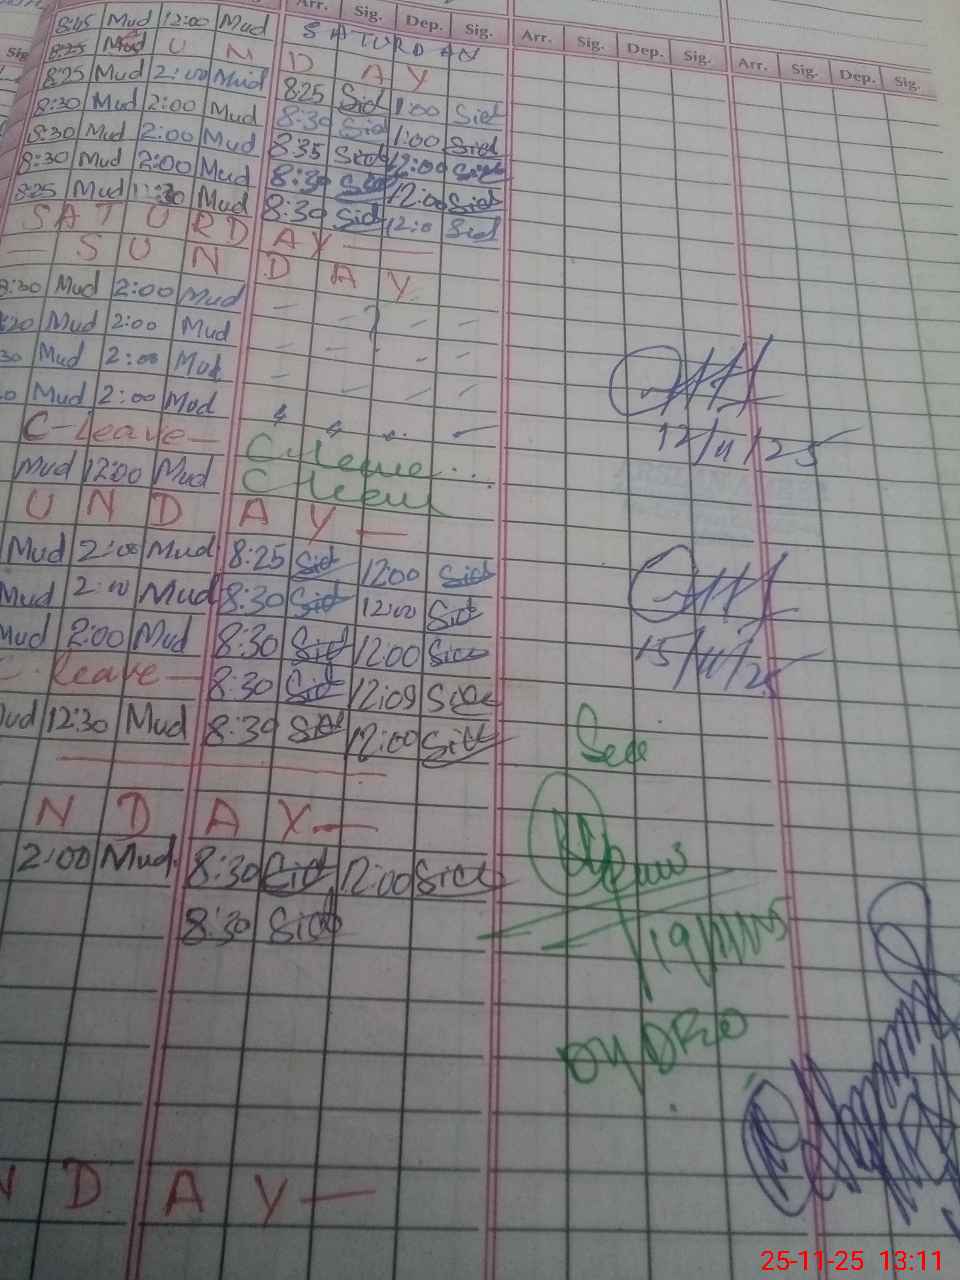 Arr. Sig. Dep. Sig. Arr. Sig. Dep. Sig. Arr. Sig. Dep. Sig.
8:45 Mud 12:00 Mud SATURDAY
8:25 Mud U N D A Y
8:25 Mud 2:00 Mud 8:25 Sid 1:00 Sid
8:30 Mud 2:00 Mud 8:30 Sid 1:00 Sid
8:30 Mud 2:00 Mud 8:35 Sid 12:00 Sid
8:30 Mud 2:00 Mud 8:30 Sid 12:00 Sid
8:25 Mud Mud 8:30 Sid 12:0 Sid
SATURDAY —
— SUNDAY
8:30 Mud 2:00 Mud
:20 Mud 2:00 Mud
30 Mud 2:00 Mud
0 Mud 2:00 Mud
C-Leave—
12/11/25
Mud 12:00 Mud C leave
UNDAY —
Mud 2:00 Mud 8:25 Sid 12:00 Sid
Mud 2:00 Mud 8:30 Sid 12:00 Sid
Mud 2:00 Mud 8:30 Sid 12:00 Sid
15/11/25
C-Leave— 8:30 Sid 12:09 Sid
ud 12:30 Mud 8:30 Sid 12:00 Sid
See
NDAY—
2:00 Mud 8:30 Sid 12:00 Sid
8:30 Sid
NDAY—
25-11-25 13:11